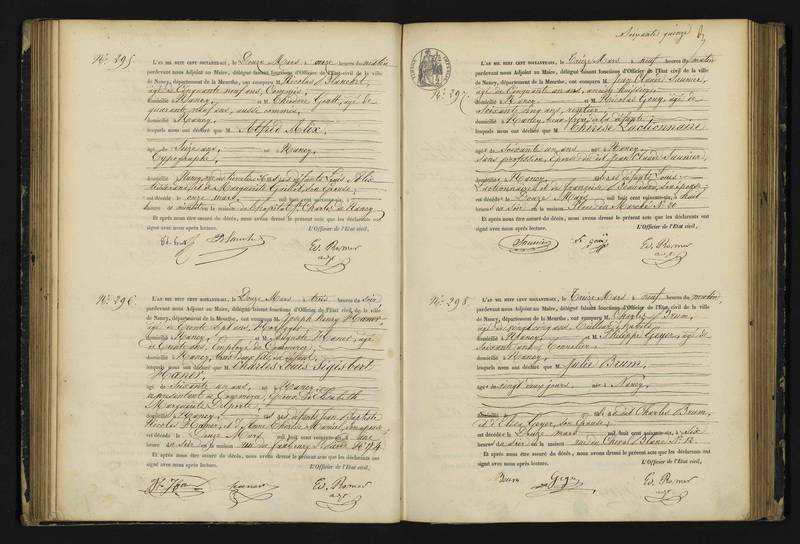 N° 295.
L'AN MIL HUIT CENT SOIXANTE-DIX, le Douze Mars à onze heures du matin
pardevant nous Adjoint au Maire, délégué faisant fonctions d'Officier de l'Etat-civil de la ville
de Nancy, département de la Meurthe, ont comparu M. Nicolas Blanchet,
âgé de Cinquante neuf ans, Commis,
domicilié à Nancy, et M. Théodore Gott, âgé de
quarante neuf ans, aussi commis,
domicilié à Nancy,
lesquels nous ont déclaré que M. Alfred Alix,
âgé de Seize ans, né à Nancy,
Typographe,
domicilié à Nancy,
et de Marguerite son épouse,
est décédé le onze mars, mil huit cent soixante-dix, à
heures du en la maison hôpital St Charles de Nancy
Et après nous être assuré du décès, nous avons dressé le présent acte que les déclarants ont
signé avec nous après lecture. L'Officier de l'Etat civil,
Ed. Romer
adjt
N° 296.
L'AN MIL HUIT CENT SOIXANTE-DIX, le Douze Mars à trois heures du soir
pardevant nous Adjoint au Maire, délégué faisant fonctions d'Officier de l'Etat-civil de la ville
de Nancy, département de la Meurthe, ont comparu M. Joseph Henry Hanot
âgé de trente sept ans, Horloger,
domicilié à Nancy, et M. Auguste Hanot, âgé
de trente ans, Employé de Commerce,
domicilié à Nancy, tous deux fils du défunt
lesquels nous ont déclaré que M. Charles Louis Sigisbert
Hanot,
âgé de Soixante un ans, né à Nancy,
représentant de Commerce, Epoux de Elisabeth
Marguerite Delporte,
domicilié à Nancy, et né de défunts Jean Baptiste
Nicolas Hanot, et d'Anne Charlotte
est décédé le Douze Mars, mil huit cent soixante-dix, à une
heure du soir en la maison rue du faubourg St Pierre N° 94
Et après nous être assuré du décès, nous avons dressé le présent acte que les déclarants ont
signé avec nous après lecture. L'Officier de l'Etat civil,
Hanot
Ed. Romer
adjt
Soixante quinze
N° 297.
L'AN MIL HUIT CENT SOIXANTE-DIX, le Treize Mars à neuf heures du matin
pardevant nous Adjoint au Maire, délégué faisant fonctions d'Officier de l'Etat-civil de la ville
de Nancy, département de la Meurthe, ont comparu M. Jean Claude Saunier,
âgé de Cinquante un ans, ancien huissier,
domicilié à Nancy, et M. Nicolas Gouy, âgé de
Soixante cinq ans, rentier
domicilié à Nancy, beau frère de la défunte
lesquels nous ont déclaré que M. Thérèse Luctionnaire
âgée de Soixante un ans, née à Nancy,
sans profession, Epouse de dit Jean Claude Saunier,
domiciliée à Nancy, née de défunts Louis
Luctionnaire et de françoise son épouse,
est décédée le Douze Mars, mil huit cent soixante-dix, à huit
heures du soir en la maison Place du Marché N° 20
Et après nous être assuré du décès, nous avons dressé le présent acte que les déclarants ont
signé avec nous après lecture. L'Officier de l'Etat civil,
Saunier
Ed. Romer
adjt
N° 298.
L'AN MIL HUIT CENT SOIXANTE-DIX, le Treize Mars à neuf heures du matin,
pardevant nous Adjoint au Maire, délégué faisant fonctions d'Officier de l'Etat-civil de la ville
de Nancy, département de la Meurthe, ont comparu M. Charles Brum,
âgé de vingt cinq ans, Tailleur d'habits,
domicilié à Nancy, et M. Philippe Geyer, âgé de
Soixante ans, Cordonnier,
domicilié à Nancy,
lesquels nous ont déclaré que M. Jules Brum,
âgé de vingt deux jours, né à Nancy,
né de dit Charles Brum,
et d'Elisa Geyer, son épouse,
est décédé le Douze mars mil huit cent soixante-dix, à six
heures du soir en la maison rue du Cheval Blanc N° 12.
Et après nous être assuré du décès, nous avons dressé le présent acte que les déclarants ont
signé avec nous après lecture. L'Officier de l'Etat civil,
Brum
Ed. Romer
adjt